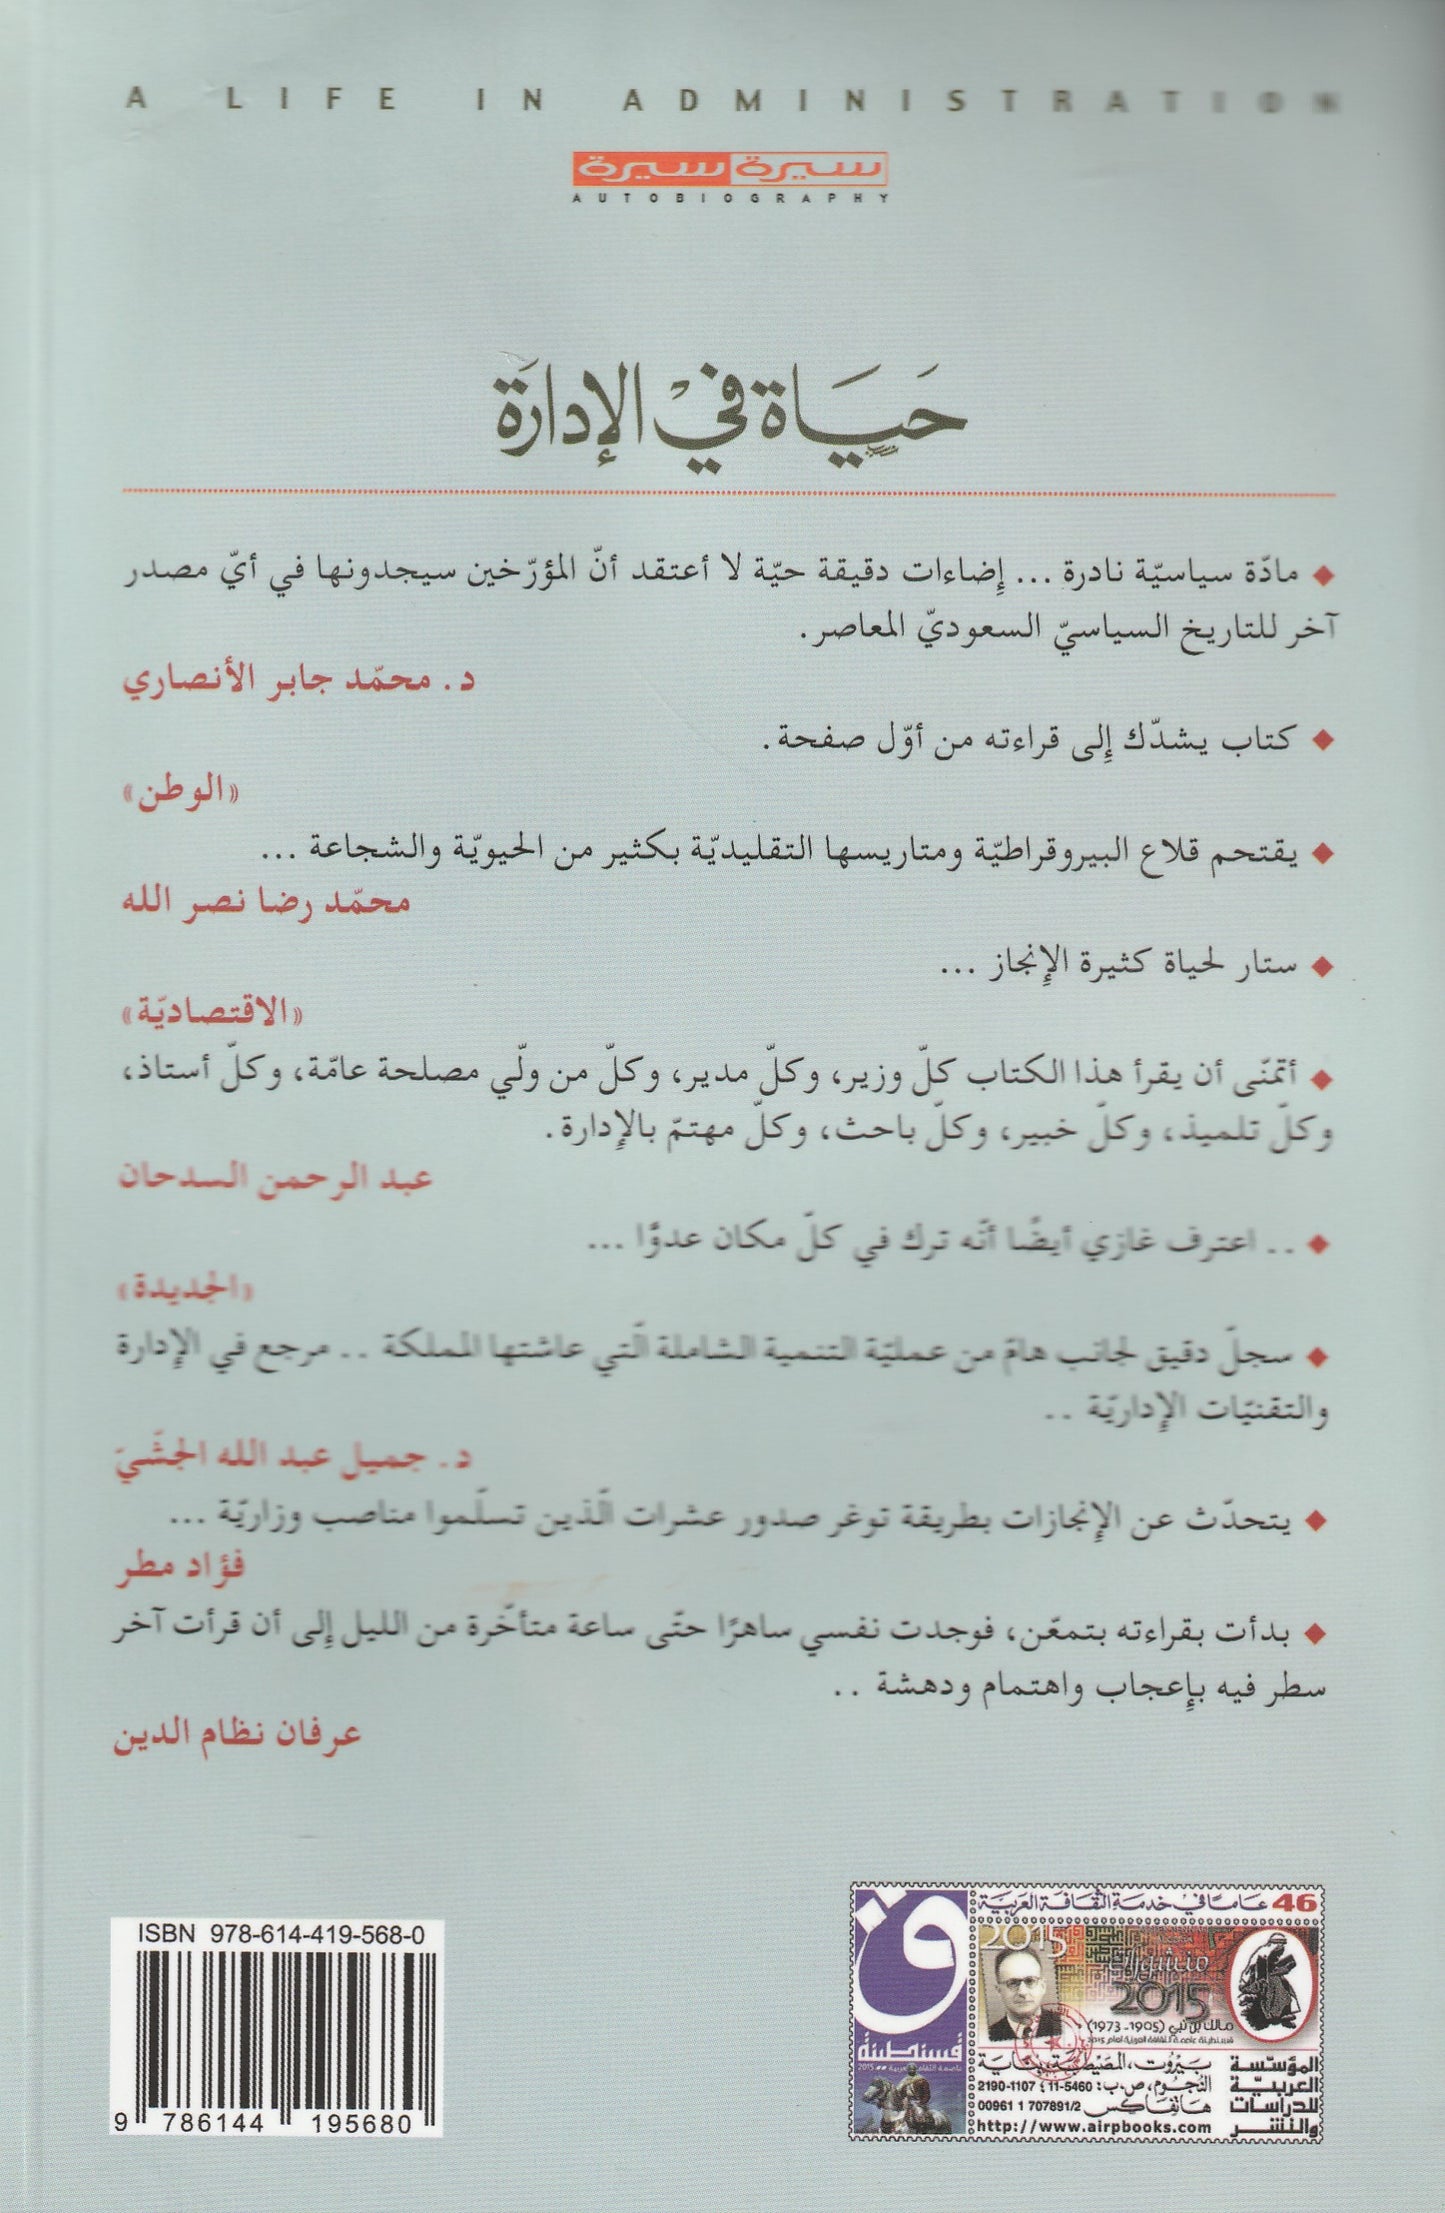 A LIFE IN ADMINISTRATION
سيرة سيرة
AUTOBIOGRAPHY
حَيَاة في الإدارَة
◆ مادّة سياسيّة نادرة ... إضاءات دقيقة حيّة لا أعتقد أنّ المؤرّخين سيجدونها في أيّ مصدر
آخر للتاريخ السياسيّ السعوديّ المعاصر.
د. محمّد جابر الأنصاري
◆ كتاب يشدّك إلى قراءته من أوّل صفحة.
«الوطن»
◆ يقتحم قلاع البيروقراطيّة ومتاريسها التقليديّة بكثير من الحيويّة والشجاعة ...
محمّد رضا نصر الله
◆ ستار لحياة كثيرة الإنجاز ...
«الاقتصاديّة»
◆ أتمنّى أن يقرأ هذا الكتاب كلّ وزير، وكلّ مدير، وكلّ من ولّي مصلحة عامّة، وكلّ أستاذ،
وكلّ تلميذ، وكلّ خبير، وكلّ باحث، وكلّ مهتمّ بالإدارة.
عبد الرحمن السدحان
◆ .. اعترف غازي أيضًا أنّه ترك في كلّ مكان عدوًّا ...
«الجديدة»
◆ سجلّ دقيق لجانب هامّ من عمليّة التنمية الشاملة الّتي عاشتها المملكة .. مرجع في الإدارة
والتقنيّات الإداريّة ..
د. جميل عبد الله الجشّي
◆ يتحدّث عن الإنجازات بطريقة توغر صدور عشرات الّذين تسلّموا مناصب وزاريّة ...
فؤاد مطر
◆ بدأت بقراءته بتمعّن، فوجدت نفسي ساهرًا حتّى ساعة متأخّرة من الليل إلى أن قرأت آخر
سطر فيه بإعجاب واهتمام ودهشة ..
عرفان نظام الدين
ISBN 978-614-419-568-0
9 786144 195680
46 عامًا في خدمة الثقافة العربية
2015
منشورات
2015
مالك بن نبي (1905-1973)
قسنطينة عاصمة الثقافة العربية لعام 2015
ق
قسنطينة
عاصمة الثقافة العربية 2015
المؤسّسة
العربيّة
للدراسات
والنشر
بيروت، المصيطبة، بناية
النجوم، ص.ب: 5460-11؛ 1107-2190
هاتفاكس 00961 1 707891/2
http://www.airpbooks.com